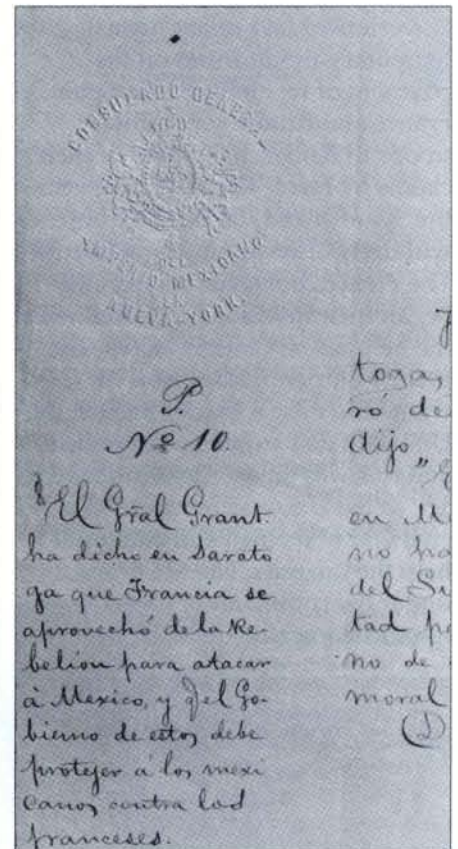 CONSULADO GENERAL
DEL
IMPERIO MEXICANO
EN
NUEVA-YORK.
P.
Nº 10.
El Gral Grant
ha dicho en Sarato
ga que Francia se
aprovechó de la Re-
belion para atacar
á Mexico, y q̃ el Go-
bierno de estos debe
protejer á los mexi
canos contra los
franceses.
toga,
ró de
dijo „
en Me
no ha
del Su
tad p
no de
moral
(D